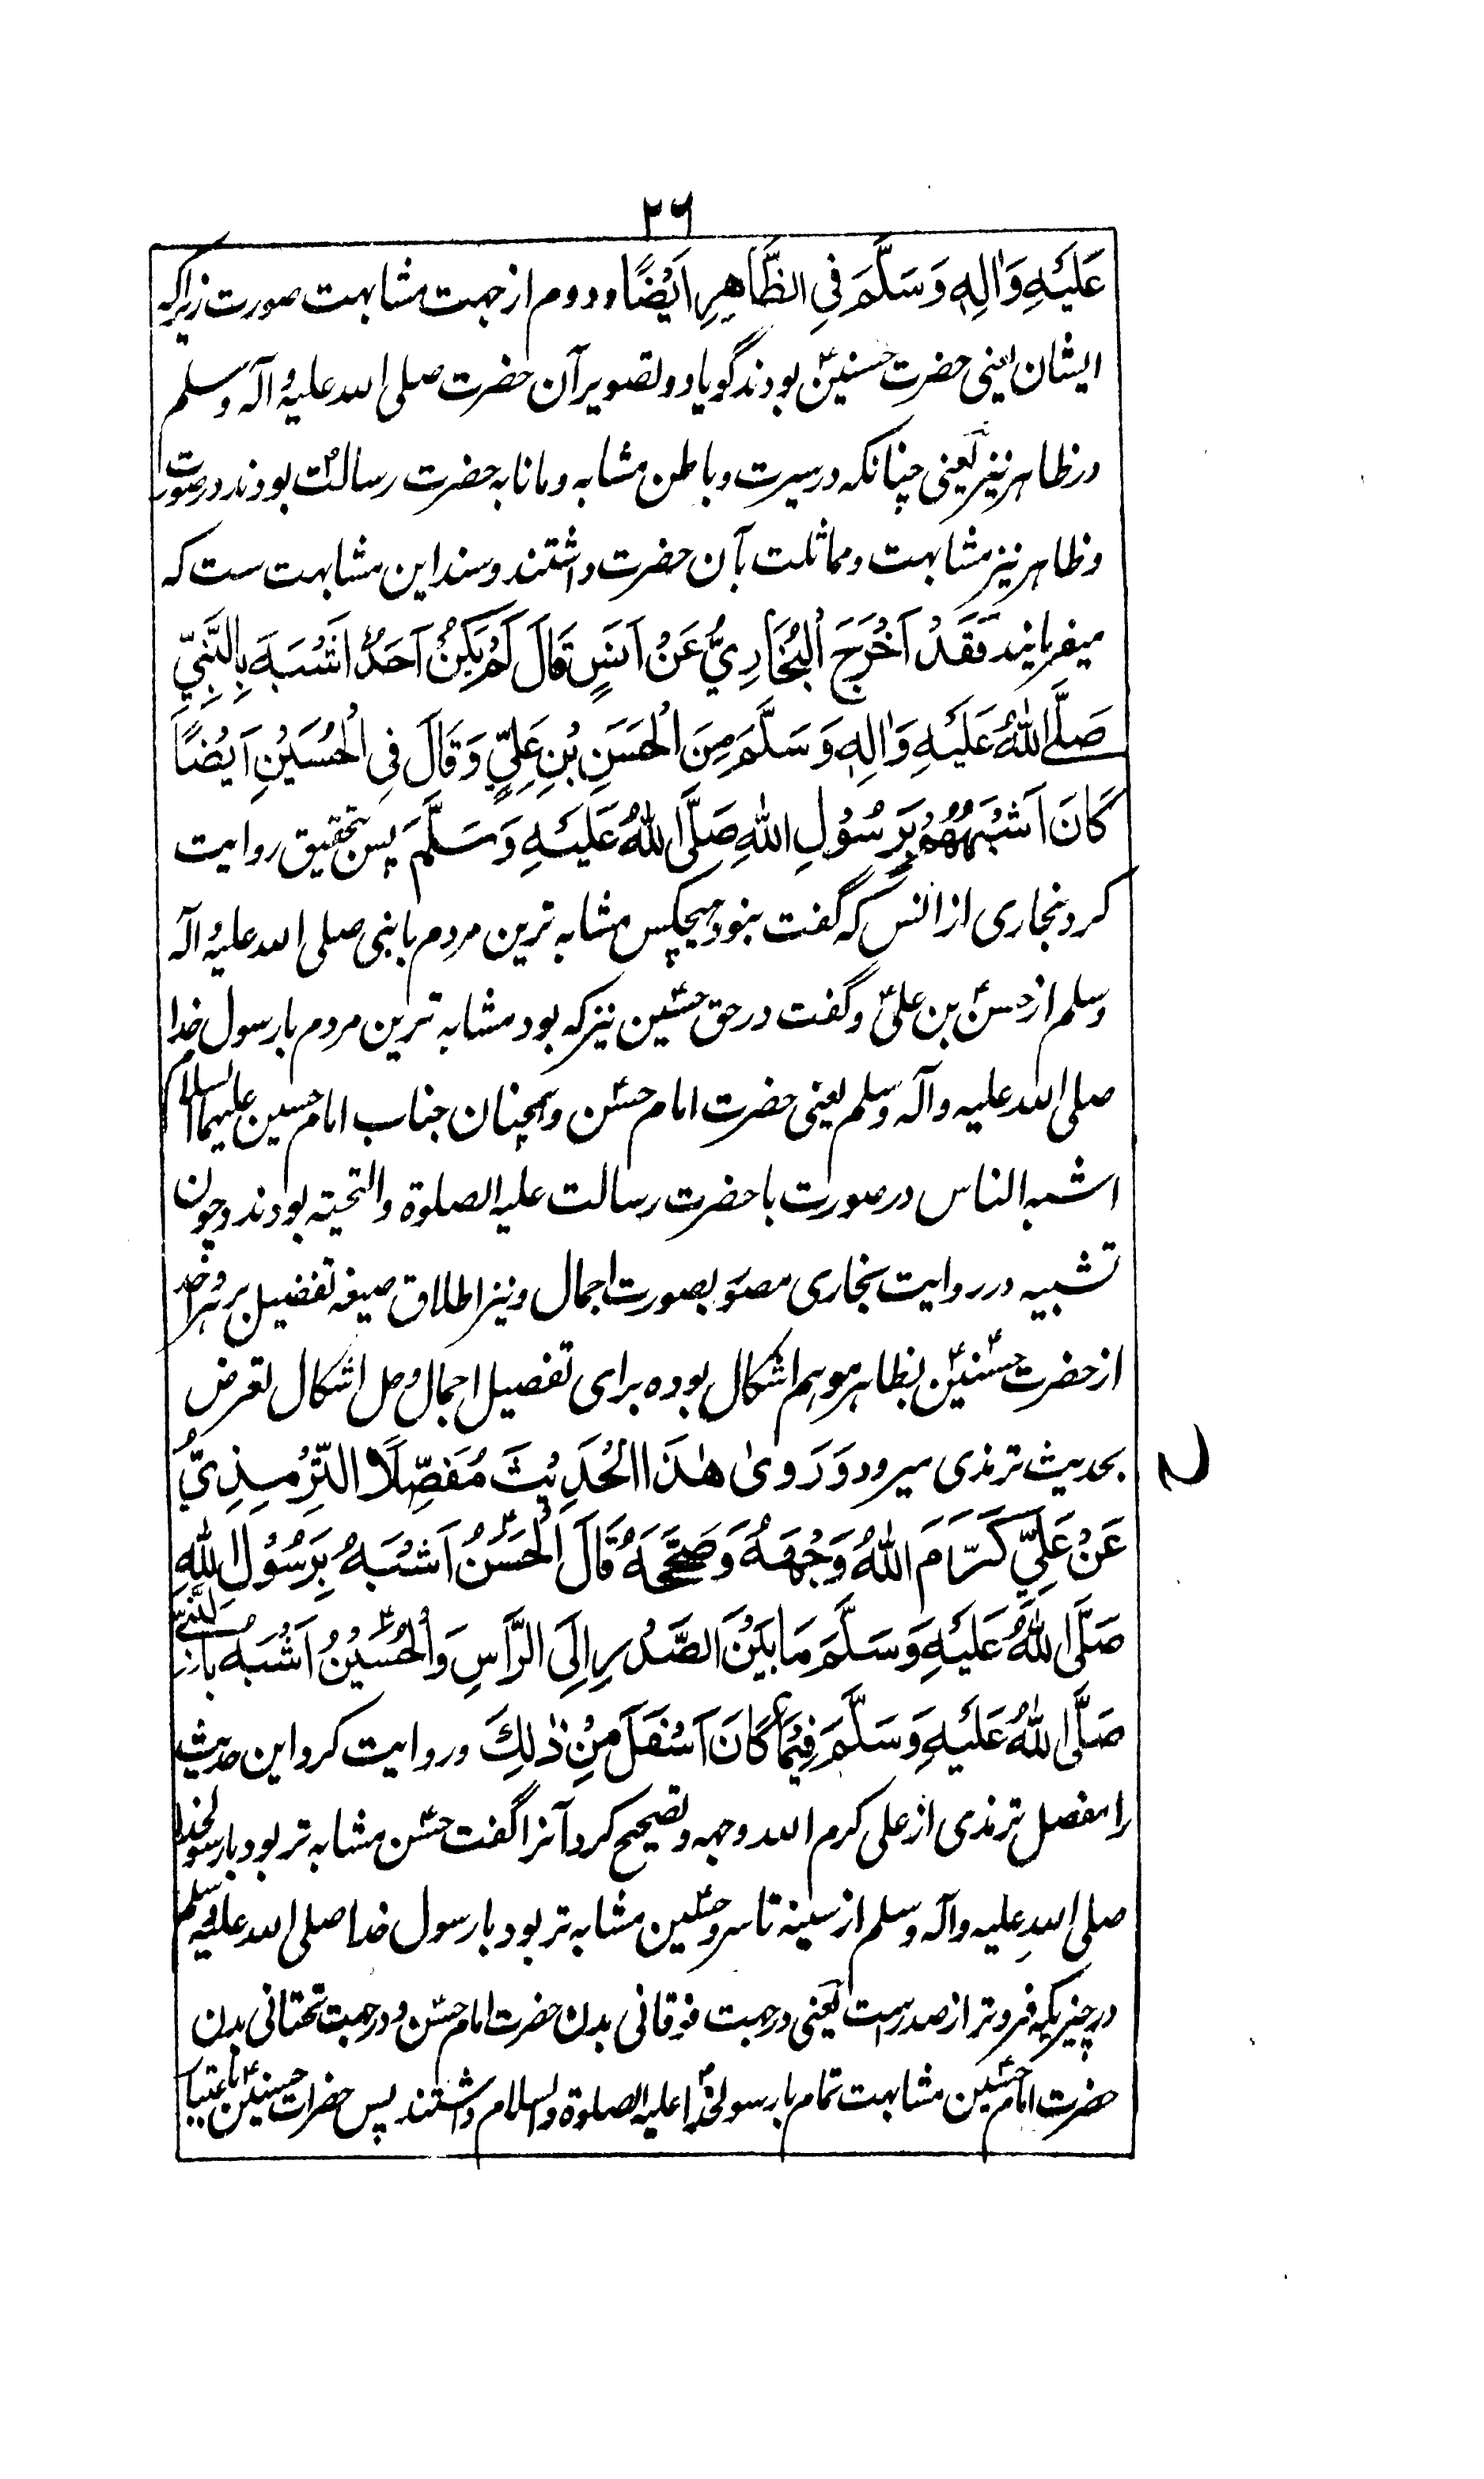 ۲۶
عَلَيْهِ وَاٰلِهٖ وَسَلَّمَ فِي الظَّاهِرِ اَيْضًا و دوم از جهت مشابهت صورت زیراکه
ایشان یعنی حضرت حسنینؑ بودند گویا دو تصویر آن حضرت صلی الله علیه و آله وسلم
در ظاهر نیز یعنی چنانکه در سیرت و باطن مشابه و مانا به حضرت رسالتؐ بودند در صورت
و ظاهر نیز مشابهت و مماثلت بآن حضرت داشتند و سند این مشابهت ست که
میفرمایند فَقَدْ اَخْرَجَ الْبُخَارِيُّ عَنْ اَنَسٍ قَالَ لَمْ يَكُنْ اَحَدٌ اَشْبَهَ بِالنَّبِيِّ
صَلَّى اللهُ عَلَيْهِ وَاٰلِهٖ وَسَلَّمَ مِنَ الْحَسَنِ بْنِ عَلِيٍّ وَقَالَ فِي الْحُسَيْنِ اَيْضًا
كَانَ اَشْبَهَهُمْ بِرَسُوْلِ اللهِ صَلَّى اللهُ عَلَيْهِ وَسَلَّمَ پس تحقیق روایت
کرد بخاری از انس که گفت نبود هیچکس مشابه ترین مردم بانبی صلی الله علیه و آله
وسلم از حسنؑ بن علیؑ و گفت در حق حسینؑ نیز که بود مشابه ترین مردم بارسول خدا
صلی الله علیه وآله وسلم یعنی حضرت امام حسنؑ و همچنان جناب امام حسین علیهما السلام
اشبه الناس در صورت با حضرت رسالت علیه الصلوة والتحیته بودند و چون
تشبیه در روایت بخاری مصوَر بصورت اجمال و نیز اطلاق صیغه تفضیل بر هر واحد
از حضرت حسنینؑ بظاهر موهم اشکال بوده برای تفصیل اجمال و حل اشکال تعرض
بحدیث ترمذی میرود وَرَوىٰ هٰذَا الْحَدِيْثَ مُفَصِّلًا التِّرْمِذِيُّ
عَنْ عَلِيٍّ كَرَّمَ اللهُ وَجْهَهُ وَصَحَّحَهُ قَالَ الْحَسَنُؑ اَشْبَهُ بِرَسُوْلِ اللهِ
صَلَّى اللهُ عَلَيْهِ وَسَلَّمَ مَا بَيْنَ الصَّدْرِ اِلَى الرَّأْسِ وَالْحُسَيْنُؑ اَشْبَهُ بِالنَّبِيِّ
صَلَّى اللهُ عَلَيْهِ وَسَلَّمَ فِيْمَا كَانَ اَسْفَلَ مِنْ ذٰلِكَ و روایت کرد این حدیث
را مفصل ترمذی از علی کرم الله وجهه و تصحیح کرد آنرا گفت حسنؑ مشابه تر بود بارسولخدا
صلی الله علیه وآله وسلم از سینه تا سر و حسینؑ مشابه تر بود بارسول خدا صلی الله علیه وسلم
در چیزیکه فروتر از صدرست یعنی در جهت فوقانی بدن حضرت امام حسنؑ و در جهت تحتانی بدن
حضرت امام حسینؑ مشابهت تمام بارسولخداؐ علیه الصلوة والسلام داشتند پس حضرات حسنینؑ باعتبار